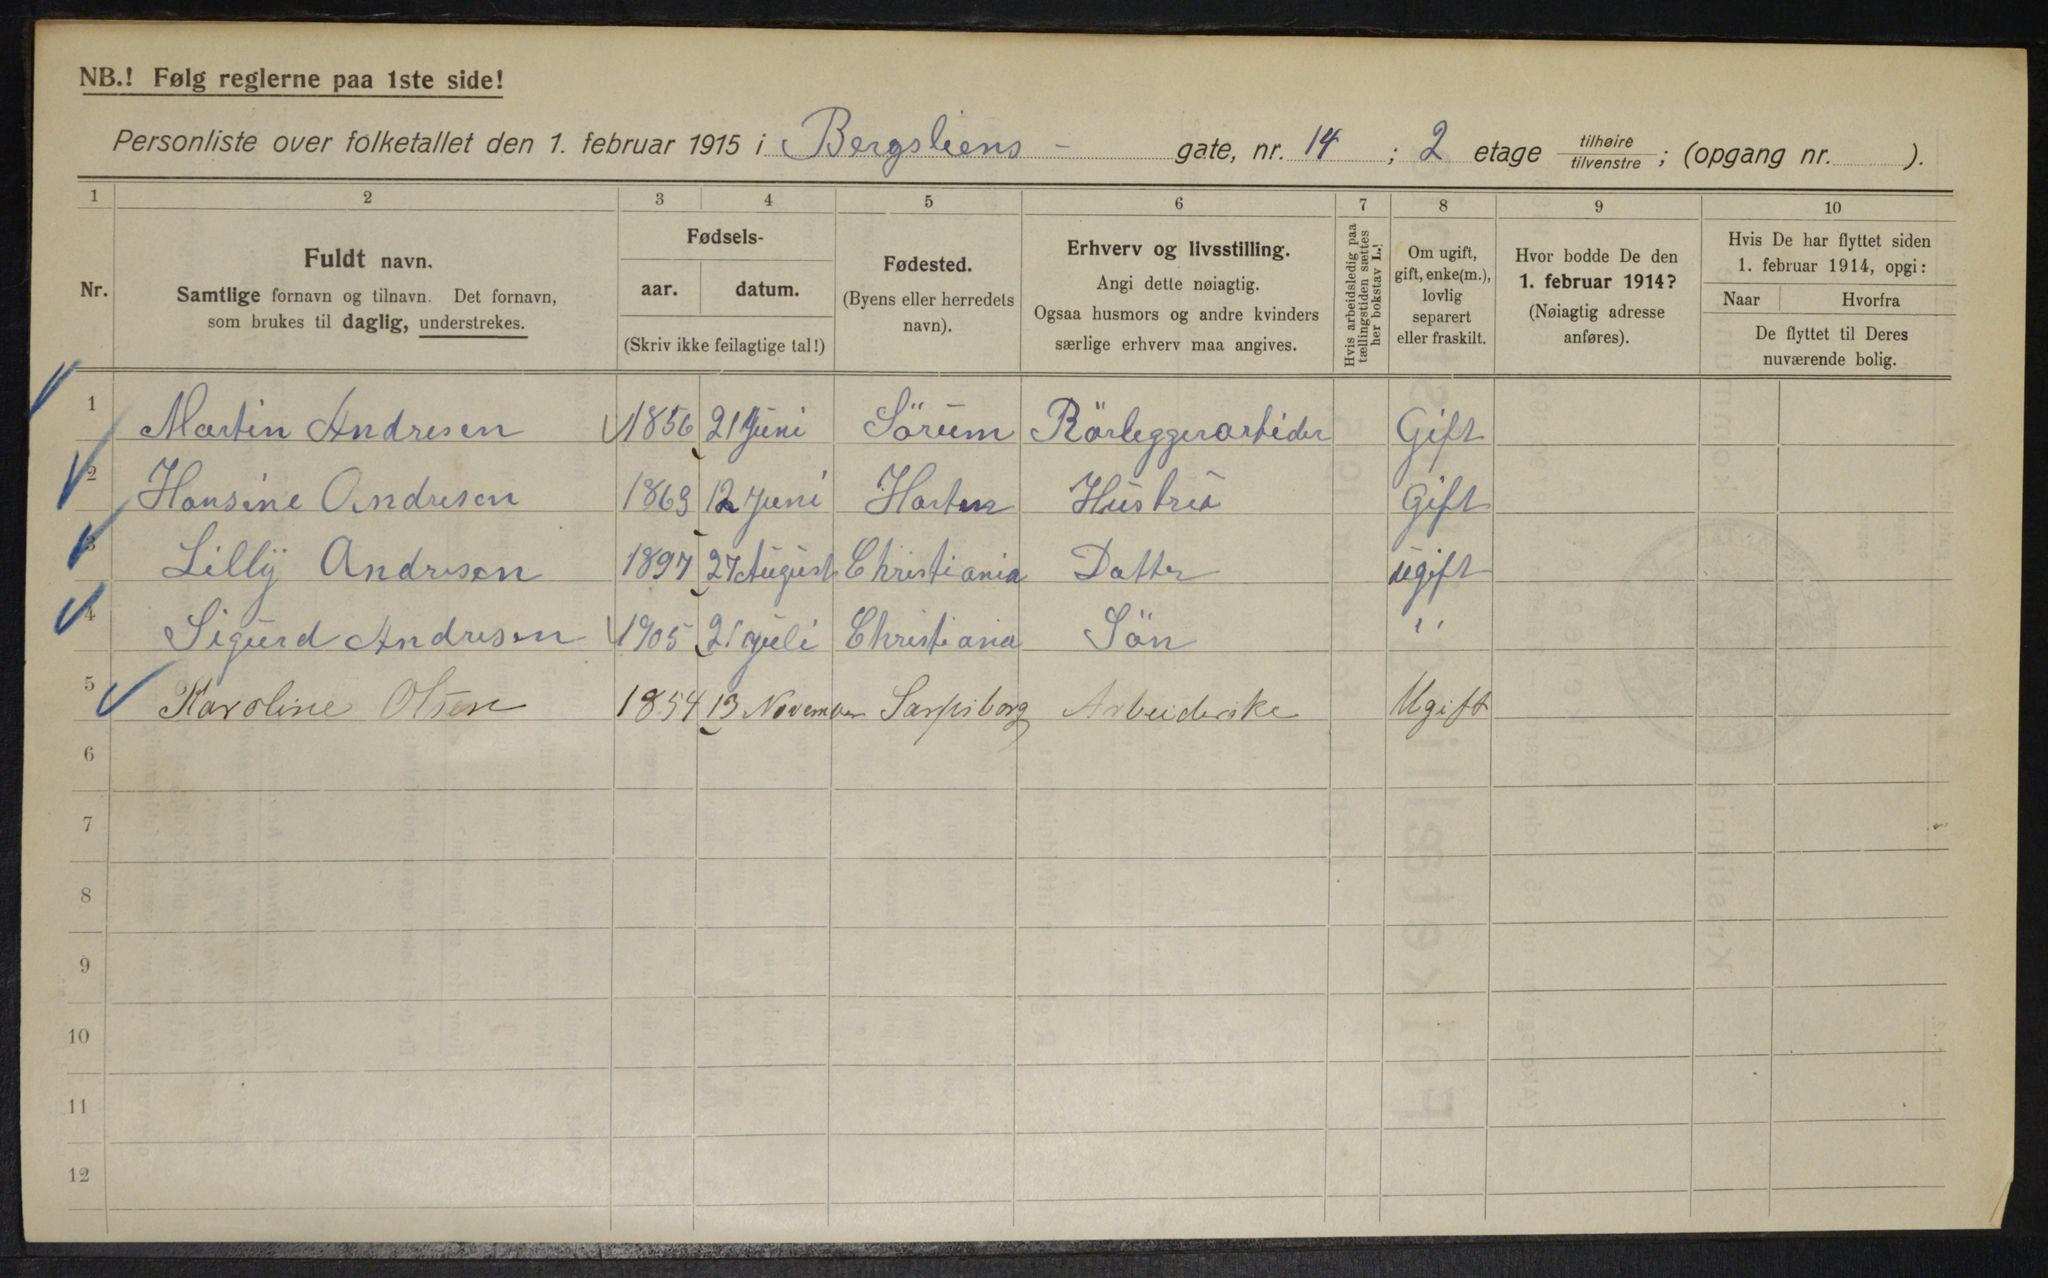 NB.! Følg reglerne paa 1ste side!
Personliste over folketallet den 1. februar 1915 i Bergsliens - gate, nr. 14 ; 2 etage tilhøire/tilvenstre ; (opgang nr. ).
1 2 3 4 5 6 7 8 9 10
Nr.
Fuldt navn.
Samtlige fornavn og tilnavn. Det fornavn,
som brukes til daglig, understrekes.
Fødsels-
aar. datum.
(Skriv ikke feilagtige tal!)
Fødested.
(Byens eller herredets
navn).
Erhverv og livsstilling.
Angi dette nøiagtig.
Ogsaa husmors og andre kvinders
særlige erhverv maa angives.
Hvis arbeidsledig paa
tællingstiden sættes
her bokstav L.!
Om ugift,
gift, enke(m.),
lovlig
separert
eller fraskilt.
Hvor bodde De den
1. februar 1914?
(Nøiagtig adresse
anføres).
Hvis De har flyttet siden
1. februar 1914, opgi:
Naar Hvorfra
De flyttet til Deres
nuværende bolig.
1 Martin Andresen 1856 21 Juni Sörum Rörleggerarbeider Gift
2 Hansine Andresen 1863 12 Juni Gift
3 Lilly Andresen 1897 27 August Christiania Datter ugift
4 Sigurd Andresen 1905 21 Juli Christiania Sön ''
5 Karoline Olsen 1854 13 November Sarpsborg Arbeiderske Ugift
6
7
8
9
10
11
12